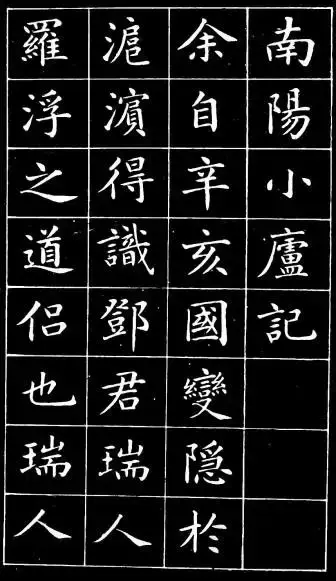 南陽小廬記
余自辛亥國變隐於
滬濵得識鄧君瑞人
羅浮之道侣也瑞人